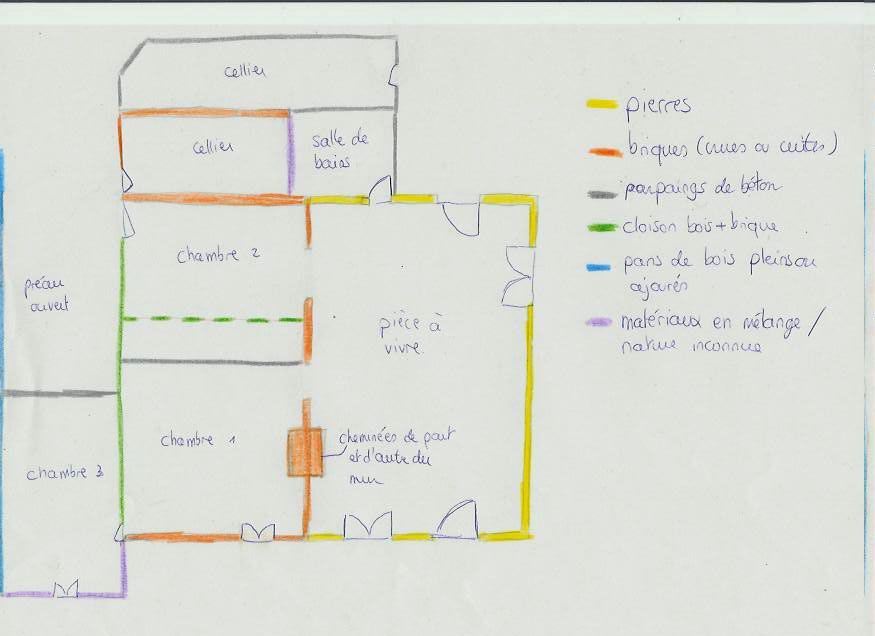 cellier
cellier
salle de
bains
chambre 2
préau
ouvert
pièce à
vivre
chambre 1
cheminées de part
et d'autre du
mur
chambre 3
pierres
briques (crues ou cuites)
parpaings de béton
cloison bois + brique
pans de bois pleins ou
ajourés
matériaux en mélange /
nature inconnue